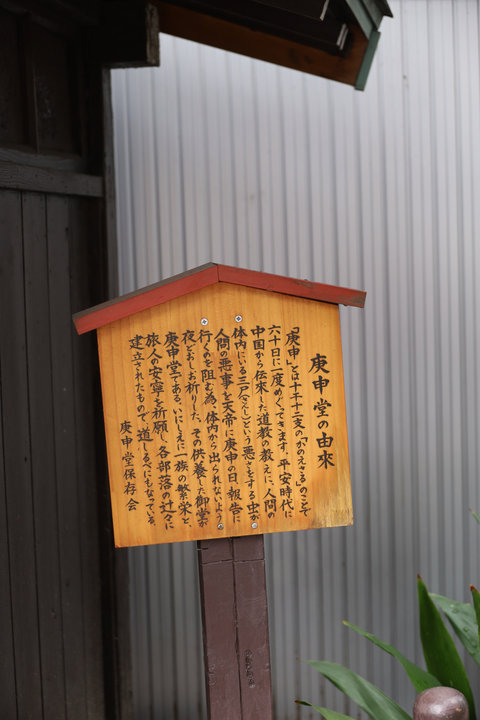 庚申堂の由來
「庚申」とは十干十二支の「かのえさる」のことで
六十日に一度めぐってきます。平安時代に
中国から伝來した道教の教えに、人間の
体内にいる三尸(さんし)という悪さをする虫が
人間の悪事を天帝に庚申の日、報告に
行くのを阻む為、体内から出られないよう
夜どおしお祈りした。その供養した御堂が
庚申堂である。いにしえに一族の繁栄と、
旅人の安寧を祈願し、各部落の辻々に
建立されたもので、道しるべにもなっている。
庚申堂保存会